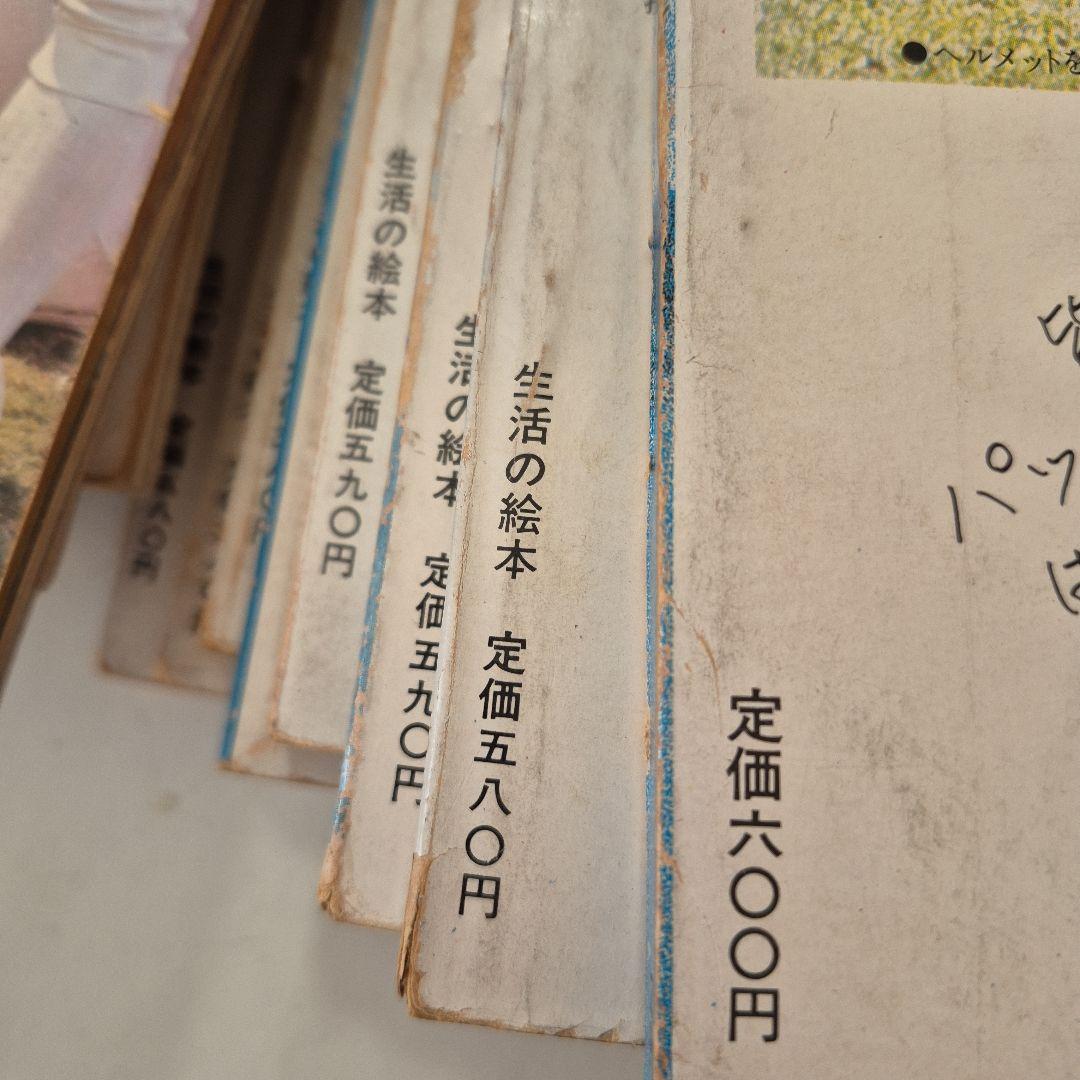 ●ヘルメットを
定価六〇〇円
生活の絵本 定価五八〇円
生活の絵本 定価五九〇円
生活の絵本 定価五九〇円